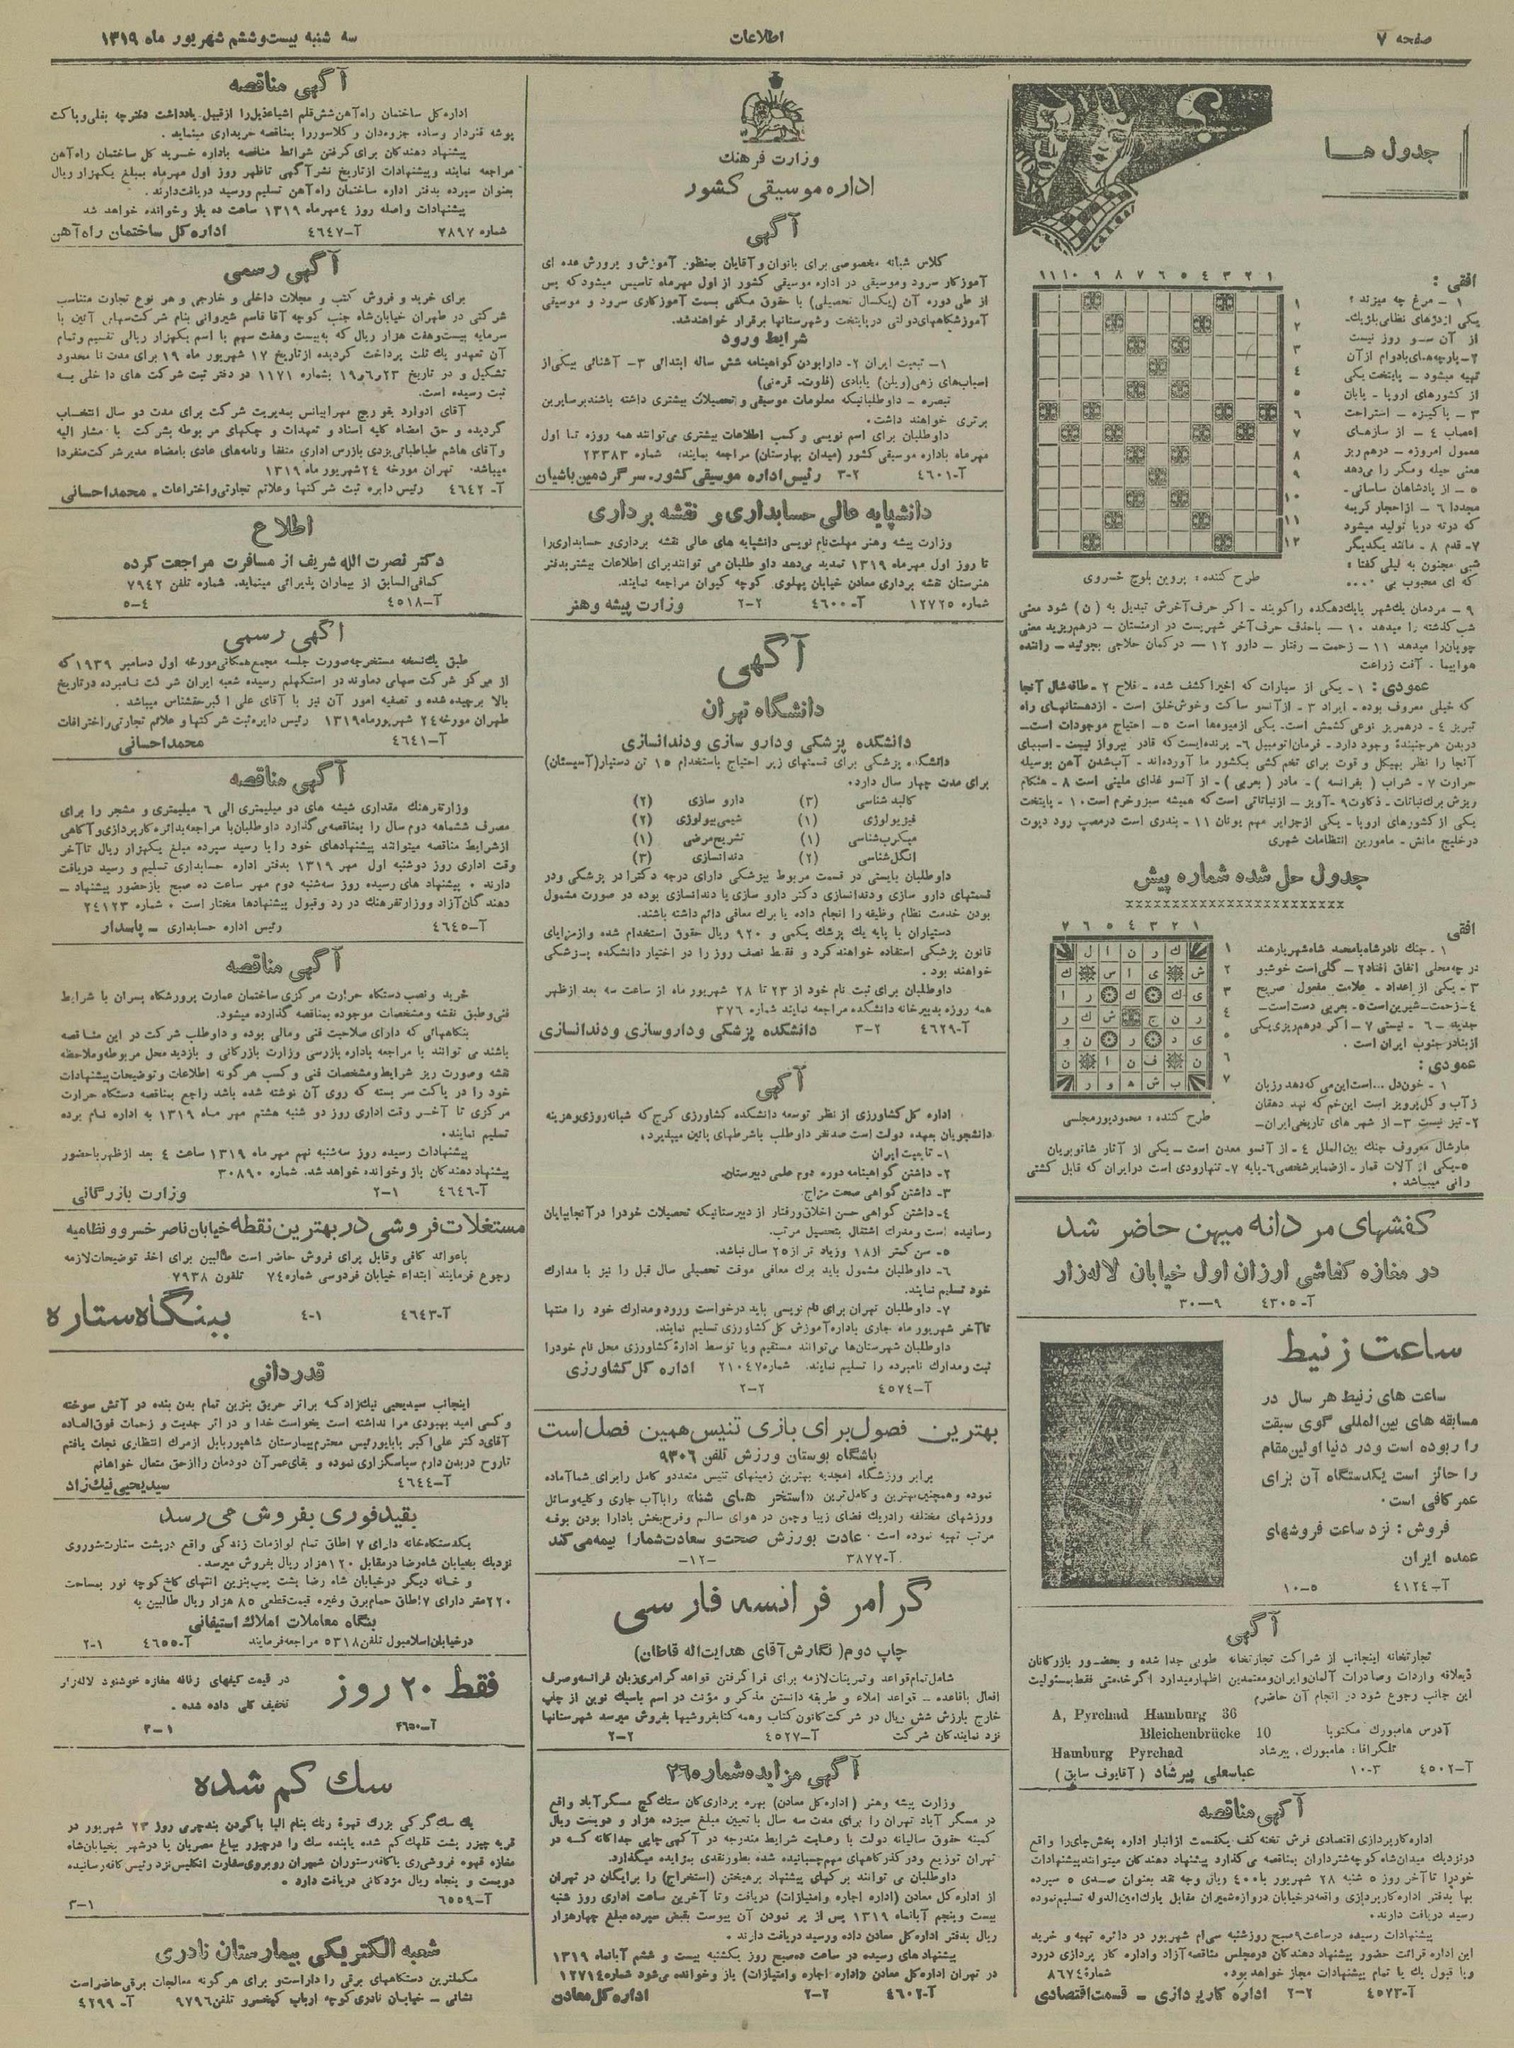 صفحه ۷
اطلاعات
سه شنبه بیست‌وششم شهریور ماه ۱۳۱۹
جدول ها
۱ ۲ ۳ ۴ ۵ ۶ ۷ ۸ ۹ ۱۰ ۱۱
۱
۲
۳
۴
۵
۶
۷
۸
۹
۱۰
۱۱
۱۲
افقی :
۱ - مرغ چه میزند ؟
یکی ازدژهای نظامی بلژیک-
از آن سو روز نیست
۲- پارچه‌های بادوام ازآن
تهیه میشود - پایتخت یکی
از کشورهای اروپا - پایان
۳ - پاکیزه - استراحت
اعصاب ۴ - از سازهای
معمول امروزه - درهم ریز
معنی حیله ومکر را می‌دهد
۵ - از پادشاهان ساسانی-
مجددا ۶ - ازاحجار کریمه
که درته دریا تولید میشود
۷- قدم ۸ - مانند یکدیگر
شبی مجنون به لیلی گفتا :
که ای محبوب بی ....
طرح کننده : پروین بلوچ خسروی
۹ - مردمان یك‌شهر یایك‌دهکده راگویند - اگر حرف‌آخرش تبدیل به (ن) شود معنی
شب‌گذشته را میدهد ۱۰ - باحذف حرف‌آخر شهریست در ارمنستان - درهم‌ریزید معنی
چوپان‌را میدهد ۱۱ - زحمت - رفتار - دارو ۱۲ - درکمان حلاجی بجوئید - راننده
هواپیما . آفت زراعت
عمودی : ۱ - یکی از سیارات که اخیراکشف شده - فلاح ۲ - طاقه‌شال آنجا
که خیلی معروف بوده - ایراد ۳ - ازآنسو ساکت وخوش‌خلق است - ازدهستانهای راه
تبریز ۴ - درهم‌ریز نوعی کشمش است. یکی ازمیوه‌ها است ۵ - احتیاج موجودات است-
دربدن هرجنبندهٔ وجود دارد. فرمان‌اتومبیل ۶- پرنده‌ایست‌که قادر بپرواز نیست - اسبهای
آنجا را نظر بهیکل و قوت برای تخم‌کشی بکشور ما آورده‌اند - آب‌شدن آهن بوسیله
حرارت ۷ - شراب (بفرانسه) - مادر (بعربی) - از آنسو غذای ملینی است ۸ - هنگام
ریزش برك‌نباتات - ذکاوت ۹ - آویز - ازنباتاتی است‌که همیشه سبزوخرم است ۱۰ - پایتخت
یکی ازکشورهای اروپا - یکی ازجزایر مهم یونان ۱۱ - بندری است درمصب رود دیوت
درخلیج مانش - مامورین انتظامات شهری
جدول حل شده شماره پیش
افقی
۱ ۲ ۳ ۴ ۵ ۶ ۷
ك ر ن ا ل
ش ی ا س ك
ی ك ك ر ا
ر ن ج ش ك ر
ی د ر ن و
ن ف ن ا ن
ب و ش ه ر
۱ - جنك نادرشاه‌بامحمد شاه‌شهریارهند
در چه‌محلی اتفاق افتاد ۲ - گلی‌است خوشبو
۳ - یکی از اعداد - علامت مفعول صریح
۴ - زحمت-شیرین‌است ۵ - بعربی دست‌است-
جدیده - ۶ - نیستی ۷ - اگر درهم‌ریزی‌یکی
ازبنادرجنوب ایران است .
عمودی :
۱ - خون‌دل ... است‌این‌می‌که‌دهد رزبان
ز آب و گل‌پرویز است این‌خم‌که نهد دهقان
۲- تیز نیست ۳ - از شهر های تاریخی‌ایران-
طرح کننده : محمودپورمجلسی
مارشال معروف جنك بین‌الملل ۴ - از آنسو معدن است - یکی از آثار شاتوبریان
۵-یکی از آلات قمار - ازضمایرشخصی ۶- پایه ۷- تنهارودی است درایران که قابل کشتی
رانی میباشد .
کفشهای مردانه میهن حاضر شد
در مغازه کفاشی ارزان اول خیابان لاله‌زار
آ-۴۳۰۵ ۹-۳۰
ساعت زنیط
ساعت های زنیط هر سال در
مسابقه های بین‌المللی گوی سبقت
را ربوده است ودر دنیا اولین‌مقام
را حائز است یکدستگاه آن برای
عمرکافی است .
فروش : نزد ساعت فروشهای
عمده ایران
آ-۴۱۲۴ ۵-۱۰
آگهی
تجارتخانه اینجانب از شراکت تجارتخانه طوبی جدا شده و بحضور بازرگانان
ذیعلاقه واردات وصادرات آلمان‌وایران ومعتمدین اظهارمیدارد اگرخدمتی فقط بمسئولیت
این جانب رجوع شود در انجام آن حاضرم
A, Pyrchad Hamburg 36
آدرس هامبورك مکتوبا Bleichenbrücke 10
تلگرافا: هامبورك . پیرشاد Hamburg Pyrchad
آ-۴۵۰۲ ۳-۱۰ عباسعلی پیرشاد (آقایوف سابق)
آگهی مناقصه
اداره کارپردازی اقتصادی فرش تخته کف یکقسمت ازانبار اداره پخش‌چای‌را واقع
درنزدیك میدان‌شاه کوچه‌شترداران بمناقصه می گذارد پیشنهاد دهندگان میتوانند پیشنهادات
خودرا تاآخر روز ۵ شنبه ۲۸ شهریور با ۴۰۰ ریال وجه نقد بعنوان صدی ۵ سپرده
بها بدفتر اداره‌کارپردازی واقعه درخیابان دروازه‌شمیران مقابل پارك‌امین‌الدوله تسلیم‌نموده
رسید دریافت دارند.
پیشنهادات رسیده درساعت ۹ صبح روزشنبه سی‌ام شهریور در دائره تهیه و خرید
این اداره قرائت حضور پیشنهاد دهندگان درمجلس مناقصه‌آزاد واداره کار پردازی دررد
ویا قبول یك یا تمام پیشنهادات مجاز خواهد بود. شماره ۸۶۷۴
آ-۴۵۷۳ ۲-۲ اداره کارپردازی - قسمت‌اقتصادی
وزارت فرهنك
اداره موسیقی کشور
آگهی
کلاس شبانه مخصوصی برای بانوان وآقایان بمنظور آموزش و پرورش عده ای
آموزگار سرود وموسیقی در اداره موسیقی کشور از اول مهرماه تاسیس میشودکه پس
از طی دوره آن (یکسال تحصیلی) با حقوق مکفی بسمت آموزگاری سرود و موسیقی
آموزشگاههای‌دولتی درپایتخت وشهرستانها برقرار خواهندشد.
شرایط ورود
۱- تبعیت ایران ۲- دارابودن‌گواهینامه شش ساله ابتدائی ۳- آشنائی بیکی‌از
اسبابهای زهی(ویلن) یابادی (فلوت- قره‌نی)
تبصره - داوطلبانیکه معلومات موسیقی و تحصیلات بیشتری داشته باشندبرسایرین
برتری خواهند داشت.
داوطلبان برای اسم نویسی و کسب اطلاعات بیشتری می‌توانند همه روزه تا اول
مهرماه باداره موسیقی کشور (میدان بهارستان) مراجعه نمایند: شماره ۲۳۳۸۳
آ-۴۶۰۱ ۲-۳ رئیس اداره موسیقی کشور-سرگردمین‌باشیان
دانشپایه عالی حسابداری و نقشه برداری
وزارت پیشه وهنر مهلت‌نام نویسی دانشپایه های عالی نقشه برداری وحسابداری‌را
تا روز اول مهرماه ۱۳۱۹ تمدید می‌دهد داو طلبان می توانند برای اطلاعات بیشتربدفتر
هنرستان نقشه برداری معادن خیابان پهلوی . کوچه کیوان مراجعه نمایند.
شماره ۱۲۷۲۵ آ-۴۶۰۰ ۲-۲ وزارت پیشه وهنر
آگهی
دانشگاه تهران
دانشکده پزشکی ودارو سازی ودندانسازی
دانشکده پزشکی برای قسمتهای زیر احتیاج باستخدام ۱۵ تن دستیار(آسیستان)
برای مدت چهار سال دارد.
کالبد شناسی (۳) دارو سازی (۲)
فیزیولوژی (۱) شیمی‌بیولوژی (۲)
میکرب‌شناسی (۱) تشریح‌مرضی (۱)
انگل‌شناسی (۲) دندانسازی (۳)
داوطلبان بایستی در قسمت مربوط بپزشکی دارای درجه دکترا در پزشکی ودر
قسمتهای دارو سازی ودندانسازی دکتر دارو سازی یا دندانسازی بوده در صورت مشمول
بودن خدمت نظام وظیفه را انجام داده یا برك معافی دائم داشته باشند.
دستیاران با پایه یك پزشك یکمی و ۹۲۰ ریال حقوق استخدام شده وازمزایای
قانون پزشکی استفاده خواهندکرد و فقط نصف روز را در اختیار دانشکده پزشکی
خواهند بود .
داوطلبان برای ثبت نام خود از ۲۳ تا ۲۸ شهریور ماه از ساعت سه بعد ازظهر
همه روزه بدبیرخانه دانشکده مراجعه نمایند شماره ۳۷۶
آ-۴۶۲۹ ۲-۳ دانشکده پزشکی وداروسازی ودندانسازی
آگهی
اداره کل کشاورزی از نظر توسعه دانشکده کشاورزی کرج‌که شبانه‌روزی‌وهزینه
دانشجویان بعهده دولت است صدنفر داوطلب باشرطهای پائین میپذیرد:
۱- تابعیت ایران
۲- داشتن گواهینامه دوره دوم علمی دبیرستان.
۳- داشتن گواهی صحت مزاج.
۴- داشتن گواهی حسن اخلاق‌ورفتار از دبیرستانیکه تحصیلات خودرا درآنجابپایان
رسانیده است ومدرك اشتغال بتحصیل مرتب.
۵- سن کمتر از ۱۸ وزیاد تر از ۲۵ سال نباشد.
۶- داوطلبان مشمول باید برك معافی موقت تحصیلی سال قبل را نیز با مدارك
خود تسلیم نمایند.
۷- داوطلبان تهران برای نام نویسی باید درخواست ورود ومدارك خود را منتها
تاآخر شهریور ماه جاری باداره‌آموزش کل‌کشاورزی تسلیم نمایند.
داوطلبان شهرستان‌ها می‌توانند مستقیم ویا توسط ادارهٔ کشاورزی محل نام خودرا
ثبت ومدارك نامبرده را تسلیم نمایند. شماره ۲۱۰۴۷ اداره کل کشاورزی
آ-۴۵۷۴ ۲-۲
بهترین فصول برای بازی تنیس همین فصل است
باشگاه بوستان ورزش تلفن ۹۳۰۶
برابر ورزشگاه امجدیه بهترین زمینهای تنیس متعددو کامل رابرای شماآماده
نموده وهمچنین‌بهترین وکامل‌ترین «استخر های شنا» راباآب جاری و کلیه وسائل
ورزشهای مختلفه رادریك فضای زیبا وچمن در هوای سالم وفرح‌بخش بادارا بودن بوفه
مرتب تهیه نموده است . عادت بورزش صحت‌و سعادت‌شمارا بیمه‌می‌کند
آ-۳۸۷۷ -۱۲-
گرامر فرانسه فارسی
چاپ دوم( نگارش‌آقای هدایت‌اله قاطان)
شامل‌تمام‌قواعد وتمرینات‌لازمه برای فراگرفتن قواعدگرامری‌زبان فرانسه‌وصرف
افعال باقاعده - قواعد املاء و طریقه دانستن مذکر و مؤنث در اسم باسبك نوین از چاپ
خارج بارزش شش ریال در شرکت کانون کتاب وهمه کتابفروشیها بفروش میرسد شهرستانها
نزد نمایندگان شرکت آ-۴۵۲۷ ۲-۲
آگهی مزایده‌شماره ۲۶۵
وزارت پیشه وهنر (اداره کل معادن) بهره برداری‌کان سنك‌گچ مسگرآباد واقع
در مسگر آباد تهران را برای مدت سه سال با تعیین مبلغ سیزده هزار و دویست ریال
کمینه حقوق سالیانه دولت با رعایت شرایط مندرجه در آگهی چاپی جداگانه که در
تهران توزیع ودرگذرگاههای مهم‌چسبانیده شده بطورنقدی بمزایده میگذارد.
داوطلبان می توانند برگهای پیشنهاد برهیختن (استخراج) را برایگان در تهران
از اداره کل معادن (اداره اجاره وامتیازات) دریافت وتا آخرین ساعت اداری روز شنبه
بیست وپنجم آبانماه ۱۳۱۹ پس از پر نمودن آن بپیوست بقبض سپرده مبلغ چهارهزار
ریال بدفتر اداره کل معادن داده ورسید دریافت دارند .
پیشنهادهای رسیده در ساعت ده‌صبح روز یکشنبه بیست و ششم آبانماه ۱۳۱۹
در تهران اداره‌کل معادن «اداره اجاره وامتیازات» باز وخوانده می‌شود شماره ۱۲۷۱۴
آ-۴۶۰۲ ۲-۲ اداره کل معادن
آگهی مناقصه
اداره کل ساختمان راه آهن شش قلم اشیاءذیل‌را ازقبیل یادداشت دفترچه بغلی وپاکت
پوشه فنردار وساده جزوه‌دان و کلاسوررا بمناقصه خریداری مینماید .
پیشنهاد دهندگان برای‌گرفتن شرائط مناقصه باداره خرید کل ساختمان راه‌آهن
مراجعه نمایند وپیشنهادات ازتاریخ نشرآگهی تاظهر روز اول مهرماه بمبلغ یکهزار ریال
بعنوان سپرده بدفتر اداره ساختمان راه آهن تسلیم ورسید دریافت‌دارند.
پیشنهادات واصله روز ۴ مهرماه ۱۳۱۹ ساعت ده باز وخوانده خواهد شد
شماره ۲۸۹۷ آ-۴۶۴۷ اداره کل ساختمان راه‌آهن
آگهی رسمی
برای خرید و فروش کتب و مجلات داخلی و خارجی و هر نوع تجارت متناسب
شرکتی در طهران خیابان‌شاه جنب کوچه آقا قاسم شیروانی بنام شرکت‌سهامی آئین با
سرمایه بیست‌وهفت هزار ریال که به‌بیست وهفت سهم با اسم یکهزار ریالی تقسیم وتمام
آن تعهدو یك ثلث پرداخت گردیده ازتاریخ ۱۷ شهریور ماه ۱۹ برای مدت نا محدود
تشکیل و در تاریخ ۲۳ر۶ر۱۹ بشماره ۱۱۷۱ در دفتر ثبت شرکت های دا خلی به
ثبت رسیده است.
آقای ادوارد بغو ریچ مهرابیانس بمدیریت شرکت برای مدت دو سال انتخاب
گردیده و حق امضاء کلیه اسناد و تعهدات و چکهای مربوطه بشرکت با مشار الیه
وآقای هاشم طباطبائی‌یزدی بازرس اداری متفقا ونامه‌های عادی بامضاء مدیرشرکت‌منفردا
میباشد. تهران مورخه ۲۴ شهریور ماه ۱۳۱۹
آ-۴۶۴۲ رئیس دایره ثبت شرکتها وعلائم تجارتی‌واختراعات . محمداحسانی
اطلاع
دکتر نصرت الله شریف از مسافرت مراجعت کرده
کمافی‌السابق از بیماران پذیرائی مینماید. شماره تلفن ۷۹۴۲
آ-۴۵۱۸ ۴-۵
آگهی رسمی
طبق یك‌نسخه مستخرجه‌صورت جلسه مجمع‌همگانی مورخه اول دسامبر ۱۹۳۹ که
از مرکز شرکت سهامی دماوند در استکهلم رسیده شعبه ایران شرکت نامبرده درتاریخ
بالا برچیده شده و تصفیه امور آن نیز با آقای علی اکبرحقشناس میباشد .
طهران مورخه ۲۴ شهریورماه ۱۳۱۹ رئیس دایره‌ثبت شرکتها و علائم تجارتی‌واختراعات
آ-۴۶۴۱ محمداحسانی
آگهی مناقصه
وزارتفرهنك مقداری شیشه های دو میلیمتری الی ۶ میلیمتری و مشجر را برای
مصرف ششماهه دوم سال را بمناقصه‌می گذارد داوطلبان با مراجعه بدائره‌کارپردازی وآگاهی
ازشرایط مناقصه میتوانند پیشنهادهای خود را با رسید سپرده مبلغ یکهزار ریال تاآخر
وقت اداری روز دوشنبه اول مهر ۱۳۱۹ بدفتر اداره حسابداری تسلیم و رسید دریافت
دارند . پیشنهاد های رسیده روز سه‌شنبه دوم مهر ساعت ده صبح بازحضور پیشنهاد -
دهندگان‌آزاد ووزارتفرهنك در رد وقبول پیشنهادها مختار است . شماره ۲۴۱۲۳
آ-۴۶۴۵ رئیس اداره حسابداری - پاسدار
آگهی مناقصه
خرید و نصب دستگاه حرارت مرکزی ساختمان عمارت پرورشگاه پسران با شرایط
فنی‌وطبق نقشه ومشخصات موجوده بمناقصه گذارده میشود.
بنگاههائی که دارای صلاحیت فنی ومالی بوده و داوطلب شرکت در این مناقصه
باشند می توانند با مراجعه باداره بازرسی وزارت بازرگانی و بازدید محل مربوطه‌وملاحظه
نقشه وصورت ریز شرایط‌ومشخصات فنی و کسب هرگونه اطلاعات وتوضیحات‌پیشنهادات
خود را در پاکت سر بسته که روی آن نوشته شده باشد راجع بمناقصه دستگاه حرارت
مرکزی تا آخر وقت اداری روز دو شنبه هشتم مهر ماه ۱۳۱۹ به اداره نام برده
تسلیم نمایند.
پیشنهادات رسیده روز سه‌شنبه نهم مهر ماه ۱۳۱۹ ساعت ۴ بعد ازظهر باحضور
پیشنهاد دهندگان باز وخوانده خواهد شد. شماره ۳۰۸۹۰
آ-۴۶۴۶ ۱-۲ وزارت بازرگانی
مستغلات فروشی در بهترین نقطه خیابان ناصر خسرو و نظامیه
باعوائد کافی وقابل برای فروش حاضر است طالبین برای اخذ توضیحات‌لازمه
رجوع فرمایند ابتداء خیابان فردوسی شماره ۷۴ تلفون ۷۹۳۸
آ-۴۶۴۳ ۱-۴ بنگاه ستاره
قدردانی
اینجانب سیدیحیی نیك‌زادکه براثر حریق بنزین تمام بدن بنده در آتش سوخته
وکسی امید بهبودی مرا نداشته است بخواست خدا و در اثر جدیت و زحمات فوق‌العاده
آقای‌دکتر علی‌اکبر بابابور رئیس محترم بیمارستان شاهپوربابل ازمرك انتظاری نجات یافتم
تاروح دربدن دارم سپاسگزاری نموده و بقای‌عمرآن دودمان راازحق متعال خواهانم
آ-۴۶۴۴ سیدیحیی نیك‌زاد
بقیدفوری بفروش می رسد
یکدستگاه‌خانه دارای ۷ اطاق تمام لوازمات زندگی واقع درپشت سفارت‌شوروی
نزدیك بخیابان شاه‌رضا درمقابل ۱۲۰ هزار ریال بفروش میرسد.
و خانه دیگر درخیابان شاه رضا پشت پمپ‌بنزین انتهای کاخ‌کوچه نور بمساحت
۲۲۰ متر دارای ۷ اطاق حمام‌برق وغیره قیمت‌قطعی ۸۵ هزار ریال طالبین به
بنگاه معاملات املاك استیفائی
درخیابان‌اسلامبول تلفن ۵۳۱۸ مراجعه‌فرمایند آ-۴۶۵۵ ۱-۲
فقط ۲۰ روز
در قیمت کیفهای زنانه مغازه خوشنود لاله‌زار
تخفیف کلی داده شده .
آ-۴۶۵۰ ۱-۳
سك گم شده
یك سك‌گرگی بزرك قهوهٔ رنك بنام البا باگردن بندچری روز ۲۳ شهریور در
قریه چیزر پشت قلهك‌گم شده یابنده سك را درچیزر بباغ مصریان یا درشهر بخیابان‌شاه
مغازه قهوه فروشی‌ری یاکافه‌رستوران شمیران روبروی‌سفارت انگلیس‌نزد رئیس کافه‌رسانیده
دویست و پنجاه ریال مژدگانی دریافت دارد .
آ-۶۵۵۹ ۱-۳
شعبه الکتریکی بیمارستان نادری
مکملترین دستگاههای برقی را داراست‌و برای هرگونه معالجات برقی‌حاضراست
نشانی - خیابان نادری‌کوچه ارباب کیخسرو تلفن ۹۷۹۶ آ-۴۲۹۹